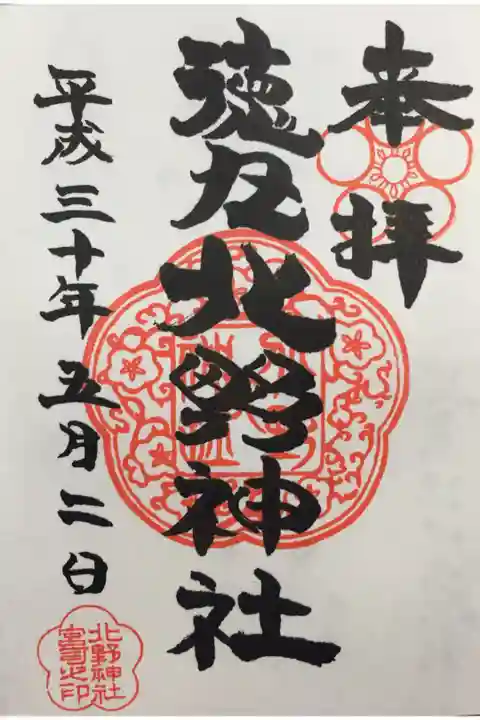 奉拝
徳丸北野神社
平成三十年五月二日
北野神社
宮司之印